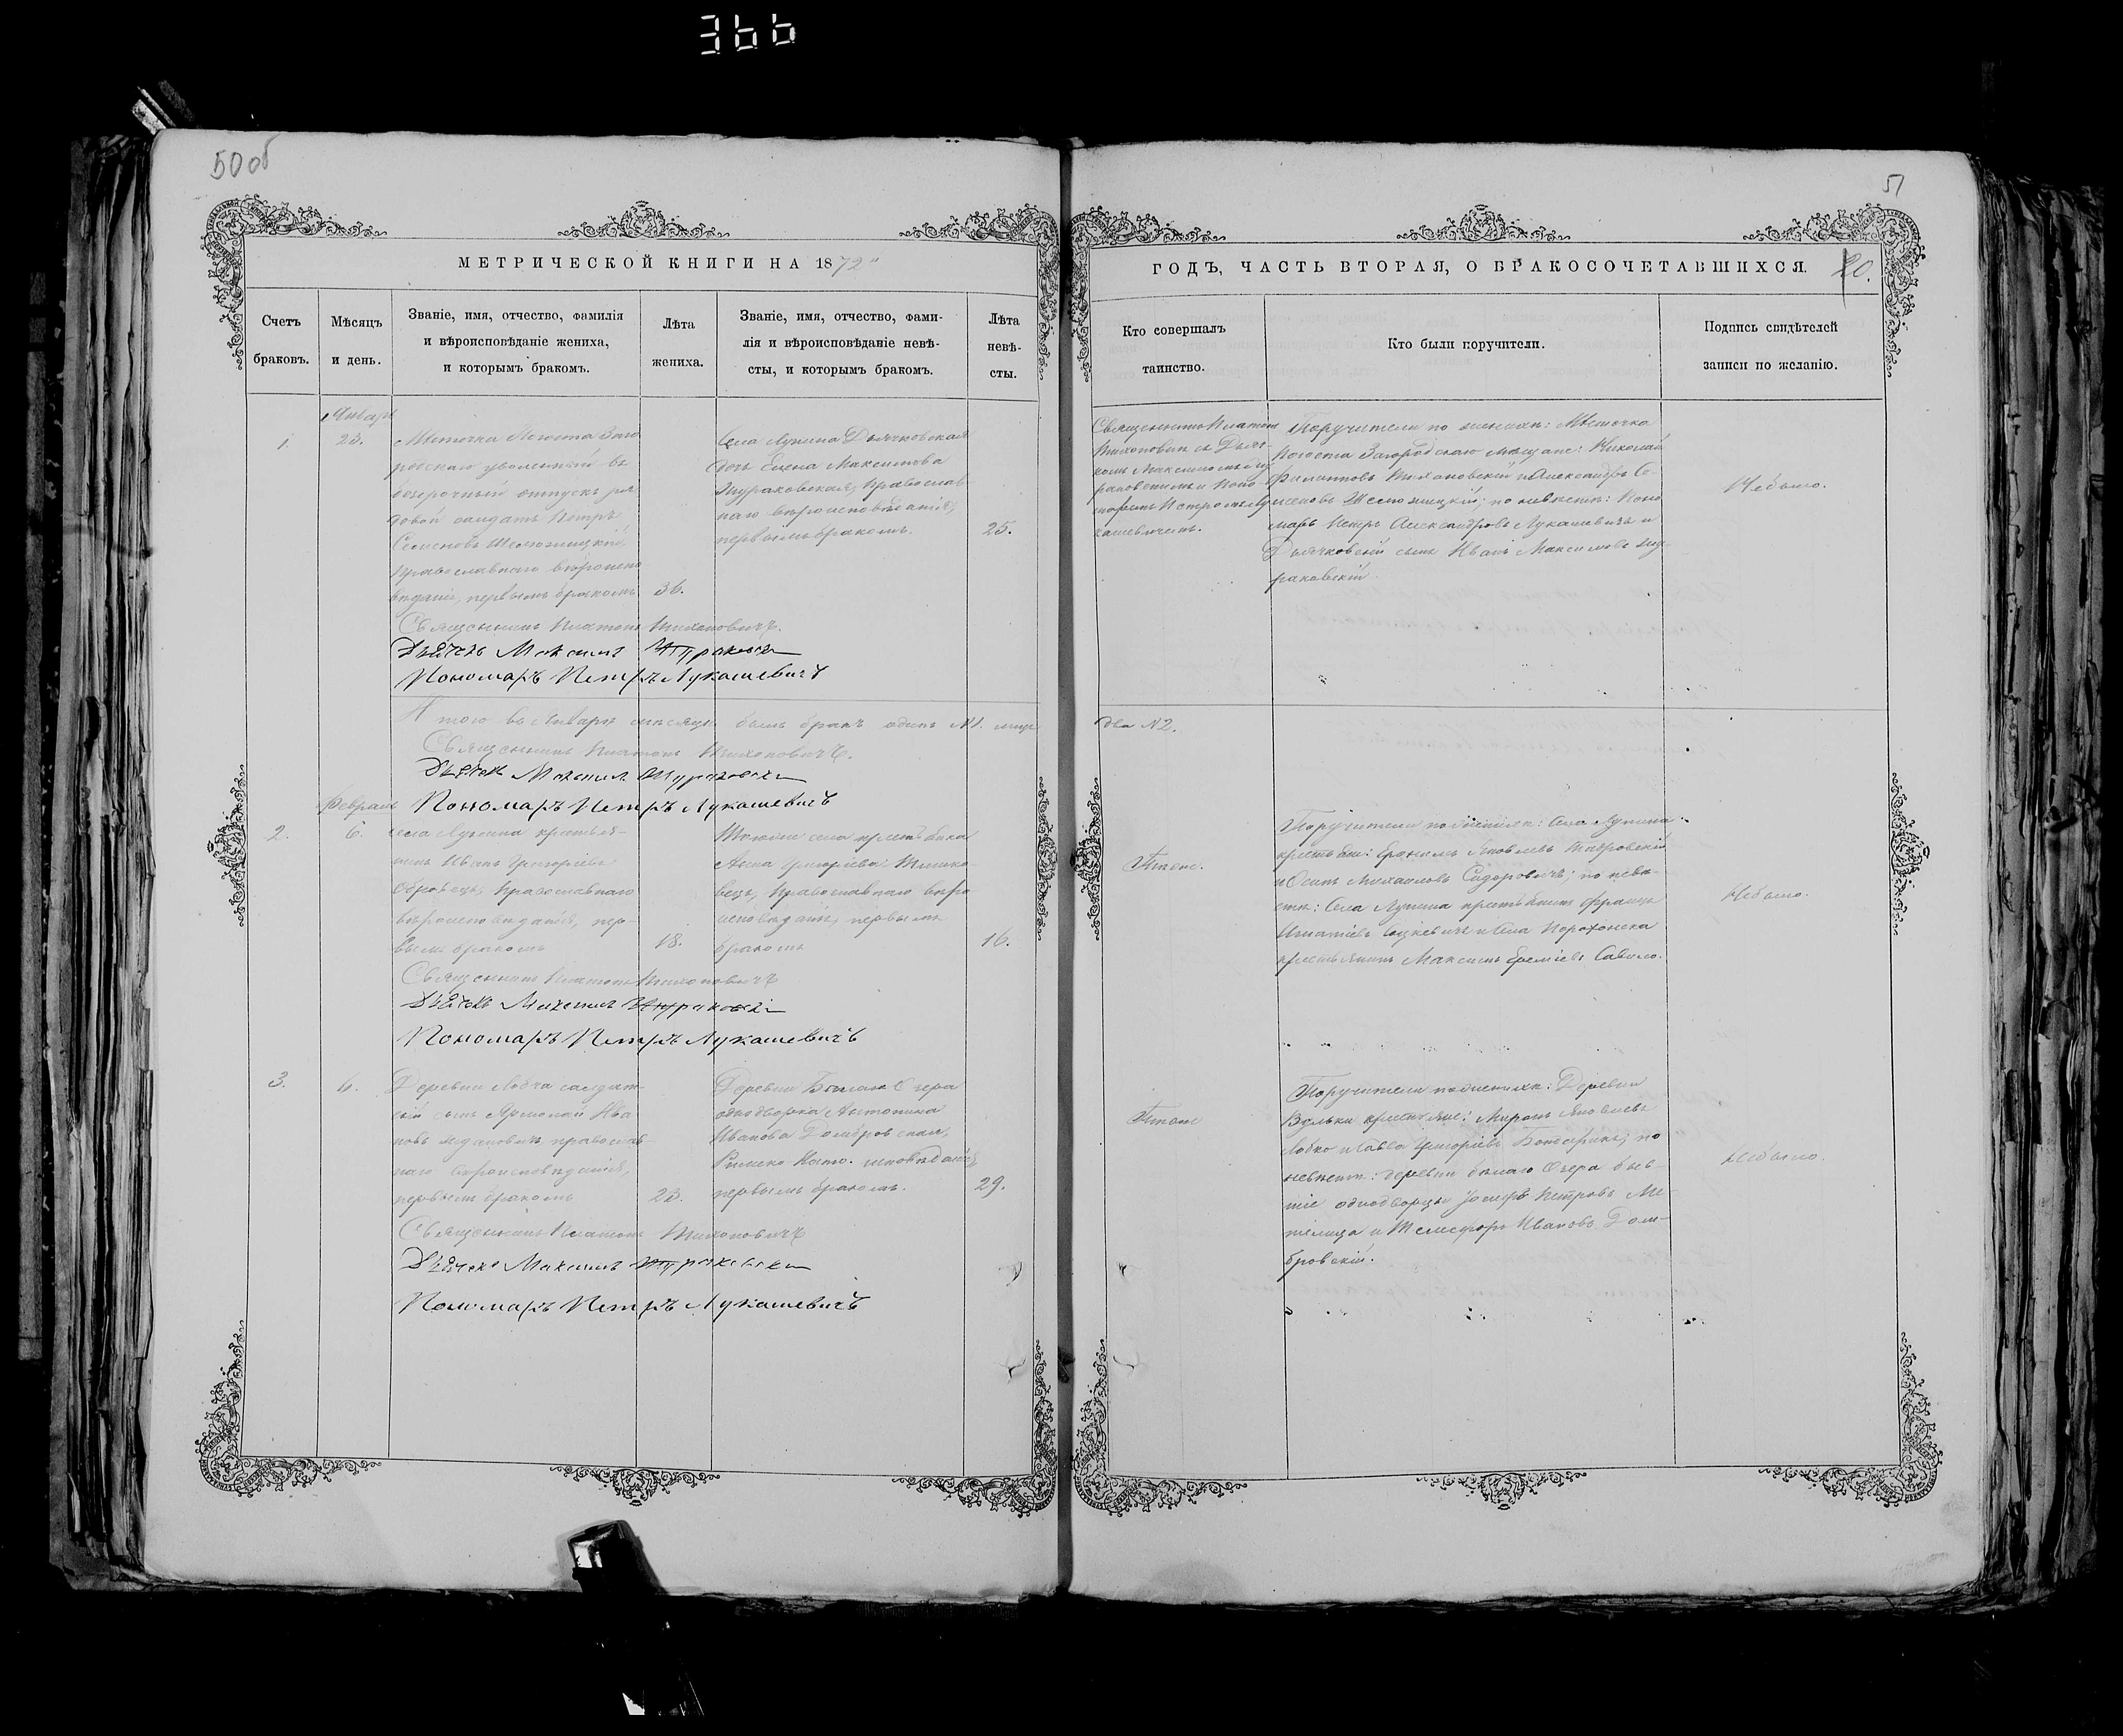 366
50 об
51
МЕТРИЧЕСКОЙ КНИГИ НА 1872
ГОДЪ, ЧАСТЬ ВТОРАЯ, О БРАКОСОЧЕТАВШИХСЯ.
20.
Счетъ
браковъ.
Мѣсяцъ
и день.
Званіе, имя, отчество, фамилія
и вѣроисповѣданіе жениха,
и которымъ бракомъ.
Лѣта
жениха.
Званіе, имя, отчество, фами-
лія и вѣроисповѣданіе невѣ-
сты, и которымъ бракомъ.
Лѣта
невѣ-
сты.
Кто совершалъ
таинство.
Кто были поручители.
Подпись свидѣтелей
записи по желанію.
1.
Января
23.
Мѣстечка Погоста Заго
родскаго уволенный въ
безсрочный отпускъ ря
довой солдатъ Петръ
Семеновъ
православнаго вѣроиспо
вѣданія, первымъ бракомъ
36.
Села Лунина Дьячковская
дочь Елена Максимова
Жураковская, православ
наго вѣроисповѣданія,
первымъ бракомъ.
25.
Священникъ Платонъ
Тихоновичъ съ Дьяч-
комъ Максимомъ Жу
раковскимъ и Поно
маремъ Петромъ Лу
кашевичемъ.
Поручители по женихѣ: Мѣстечка
Погоста Загородскаго мѣщане: Николай
Филипповъ Тихановскій и Александръ Се-
меновъ по невѣстѣ: Поно
марь Петръ Александровъ Лукашевичъ и
Дьячковскій сынъ Иванъ Максимовъ Жу-
раковскій.
Небыло.
Священникъ Платонъ Тихоновичъ.
Дьячекъ Максимъ Жураковскій
Пономаръ Петръ Лукашевичъ
А того въ Январѣ мѣсяцѣ былъ бракъ одинъ №1.
два №2.
Священникъ Платонъ Тихоновичъ.
Дьячекъ Максимъ Жураковскій
Пономаръ Петръ Лукашевичъ
2.
Февраля
6.
Села Лунина крестья-
нинъ Иванъ Григорьевъ
православнаго
вѣроисповѣданія, пер-
вымъ бракомъ
18.
Тогоже села крестьянка
Анна Григорьева
православнаго вѣро
исповѣданія, первымъ
бракомъ
16.
Тѣже.
Поручители по женихѣ: Села Лунина
крестьяне: Яковлевъ
и Осипъ Михайловъ Сидоровичъ; по невѣ-
стѣ: Села Лунина крестьянинъ Францъ
Игнатіевъ и Села Порохонска
крестьянинъ Максимъ Савило.
Небыло.
Священникъ Платонъ Тихоновичъ
Дьячекъ Максимъ Жураковскій
Пономаръ Петръ Лукашевичъ
3.
6.
Деревни Лобча солдат-
скій сынъ Ярмолай Ива
новъ православ-
наго вѣроисповѣданія,
первымъ бракомъ
23.
Деревни Бѣлаго Озера
однодворка Антонина
Иванова Домбровская,
Римско Като. исповѣданія,
первымъ бракомъ.
29.
Тѣже
Поручители по женихѣ: Деревни
Вульки крестьяне: Миронъ Яковлевъ
Лобко и Савва Григорьевъ по
невѣстѣ: деревни Бѣлаго Озера быв-
шіе однодворцы Іосифъ Петровъ Ме-
телица и Телесфоръ Ивановъ Дом-
бровскій.
Небыло.
Священникъ Платонъ Тихоновичъ
Дьячекъ Максимъ Жураковскій
Пономаръ Петръ Лукашевичъ